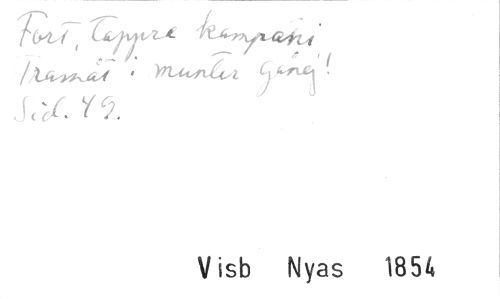 Fort, tappra kampani
Framåt i munter gång!
Sid. 49.
Visb Nyas 1854